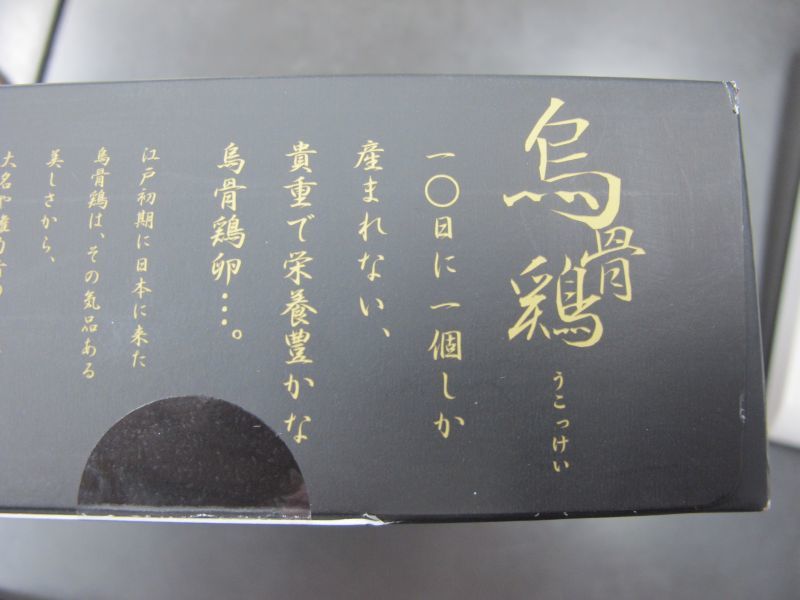 烏骨鶏
うこっけい
一〇日に一個しか
産まれない、
貴重で栄養豊かな
烏骨鶏卵…。
江戸初期に日本に来た
烏骨鶏は、その気品ある
美しさから、
大名や権力者の